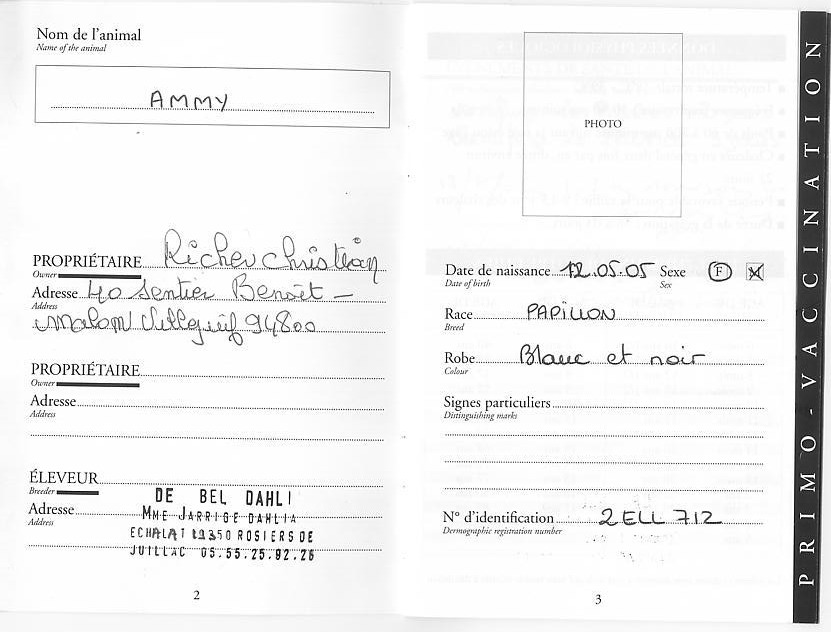 Nom de l'animal
Name of the animal
AMMY
PROPRIÉTAIRE Richer Christian
Owner
Adresse 40 Sentier Benoît -
Address
Villejuif 94800
PROPRIÉTAIRE
Owner
Adresse
Address
ÉLEVEUR
Breeder
DE BEL DAHLI
Adresse MME JARRIGE DAHLIA
Address
ECHALAT 19350 ROSIERS DE
JUILLAC 05.55.25.92.26
2
PHOTO
Date de naissance 12.05.05 Sexe F M
Date of birth Sex
Race PAPILLON
Breed
Robe Blanc et noir
Colour
Signes particuliers
Distinguishing marks
N° d'identification 2ELL 712
Dermographic registration number
3
PRIMO-VACCINATION